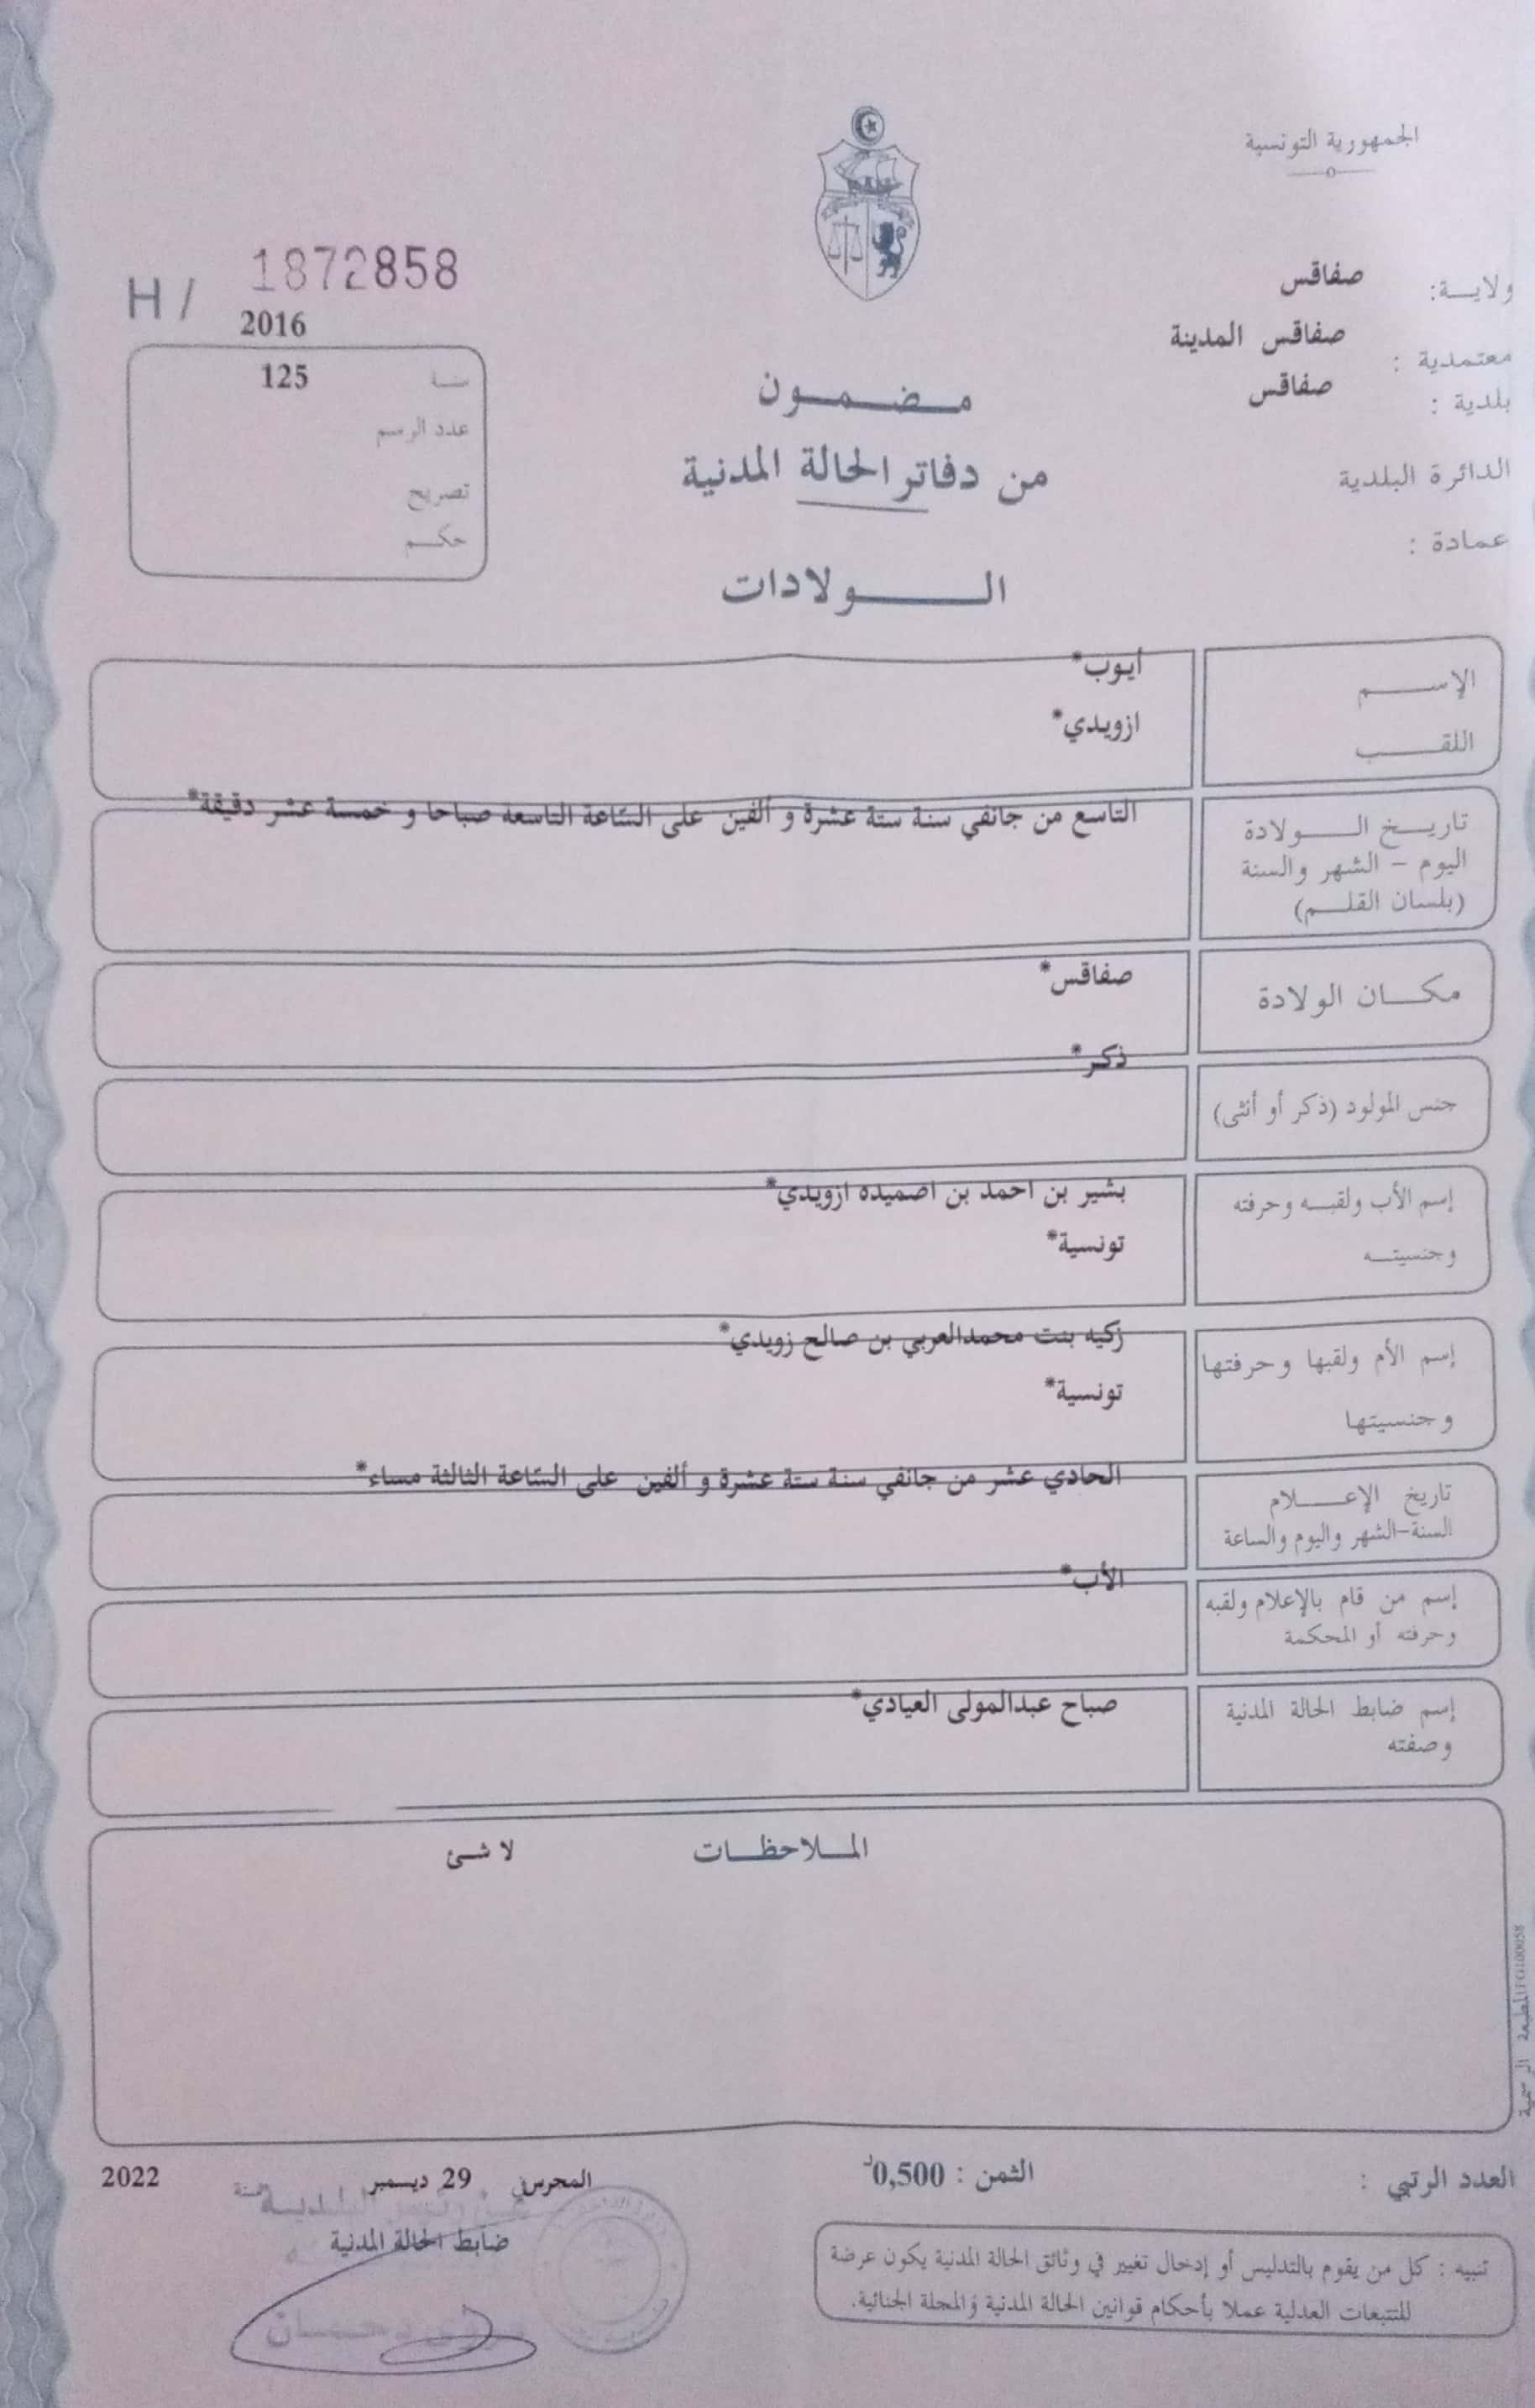 الجمهورية التونسية
ولايـــة: صفاقس
معتمدية : صفاقس المدينة
بلدية : صفاقس
الدائرة البلدية
عمادة :
H / 1872858
2016
سنـة 125
عدد الرسم
تصريح
حكـــم
مـــضـــمـــون
من دفاتر الحالة المدنية
الـــــولادات
الإســــــم أيوب*
اللقــــــب ازويدي*
تاريـــخ الـــــولادة التاسع من جانفي سنة ستة عشرة و ألفين على السّاعة التاسعة صباحا و خمسة عشر دقيقة*
اليوم - الشهر والسنة
(بلسان القلـــم)
مكـــان الولادة صفاقس*
ذكر*
جنس المولود (ذكر أو أنثى)
إسم الأب ولقبـــه وحرفته بشير بن احمد بن اصميده ازويدي*
وجنسيتـــه تونسية*
إسم الأم ولقبها وحرفتها زكيه بنت محمدالعربي بن صالح زويدي*
وجنسيتها تونسية*
تاريخ الإعــــلام الحادي عشر من جانفي سنة ستة عشرة و ألفين على السّاعة الثالثة مساء*
السنة-الشهر واليوم والساعة
إسم من قام بالإعلام ولقبه الأب*
وحرفته أو المحكمة
إسم ضابط الحالة المدنية صباح عبدالمولى العيادي*
وصفته
المـــلاحظـــات لا شئ
المطبعة الرسمية
العدد الرتبي :
الثمن : 0,500د
المحرس في 29 ديسمبر سنة 2022
ضابط الحالة المدنية
تنبيه : كل من يقوم بالتدليس أو إدخال تغيير في وثائق الحالة المدنية يكون عرضة
للتتبعات العدلية عملا بأحكام قوانين الحالة المدنية والمجلة الجنائية.